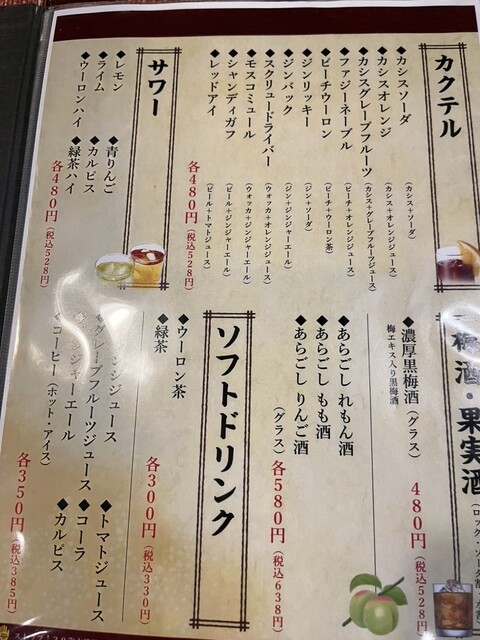 カクテル
◆カシスソーダ(カシス+ソーダ)
◆カシスオレンジ(カシス+オレンジジュース)
◆カシスグレープフルーツ(カシス+グレープフルーツジュース)
◆ファジーネーブル(ピーチ+オレンジジュース)
◆ピーチウーロン(ピーチ+ウーロン茶)
◆ジンリッキー(ジン+ソーダ)
◆ジンバック(ジン+ジンジャーエール)
◆スクリュードライバー(ウォッカ+オレンジジュース)
◆モスコミュール(ウォッカ+ジンジャーエール)
◆シャンディガフ(ビール+ジンジャーエール)
◆レッドアイ(ビール+トマトジュース)
各480円(税込528円)
サワー
◆レモン
◆ライム
◆ウーロンハイ
◆青りんご
◆カルピス
◆緑茶ハイ
各480円(税込528円)
梅酒・果実酒
(ロック・ソーダ
◆濃厚黒梅酒(グラス)
梅エキス入り黒梅酒
480円(税込528円)
◆あらごし れもん酒
◆あらごし もも酒
◆あらごし りんご酒
(グラス)各580円(税込638円)
ソフトドリンク
◆ウーロン茶
◆緑茶
各300円(税込330円)
ジュース
グレープフルーツジュース
ジャーエール
コーヒー(ホット・アイス)
◆トマトジュース
◆コーラ
◆カルピス
各350円(税込385円)